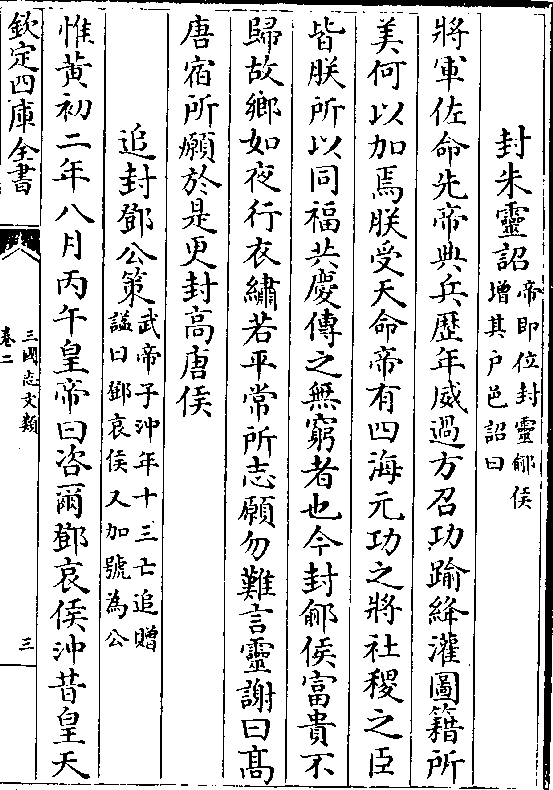 封朱靈詔帝即位封靈鄃侯
增其户邑詔曰
將軍佐命先帝典兵歷年威過方召功踰絳灌圖籍所
美何以加焉朕受天命帝有四海元功之將社稷之臣
皆朕所以同福共慶傳之無窮者也今封鄃侯富貴不
歸故鄉如夜行衣繡若平常所志願勿難言靈謝曰髙
唐宿所願於是更封高唐侯
追封鄧公策武帝子沖年十三亡追贈
諡曰鄧哀侯又加號為公
惟黃初二年八月丙午皇帝曰咨爾鄧哀侯沖昔皇天
欽定四庫全書
三國志文類
卷二
三